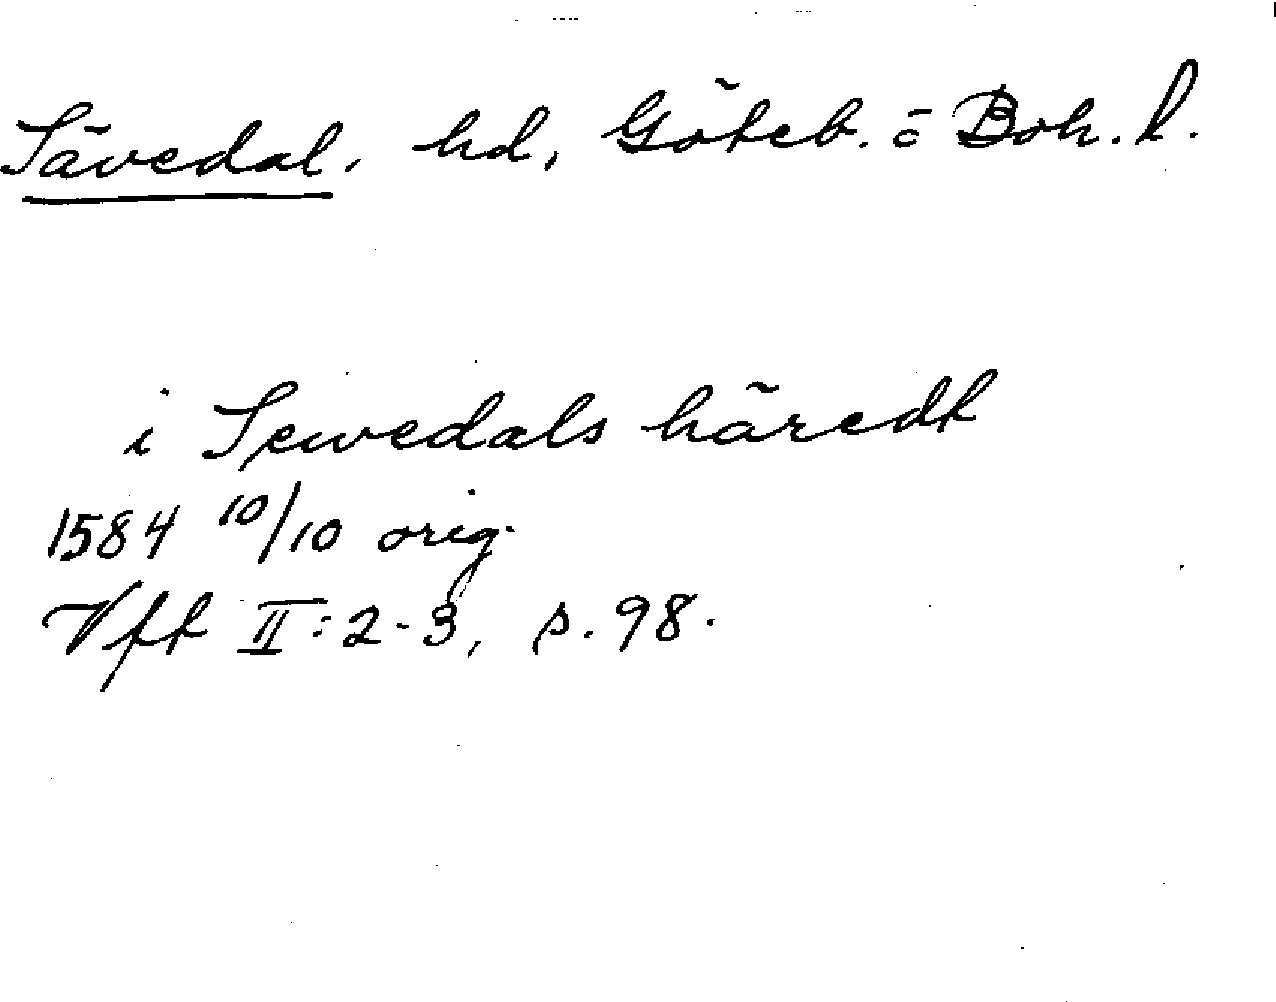 Sävedal, hd, Göteb. o Boh. l.
i Sewedals häredt
1584 10/10 orig.
Vft II: 2-3, s. 98.